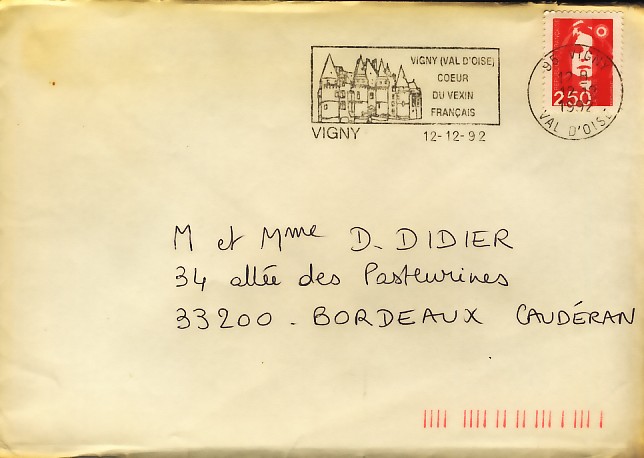 VIGNY (VAL D'OISE)
COEUR
DU VEXIN
FRANÇAIS
VIGNY 12-12-92
2,50
95 VIGNY
1992
VAL D'OISE
M et Mme D. DIDIER
34 allée des Pasteurines
33200 - BORDEAUX CAUDÉRAN